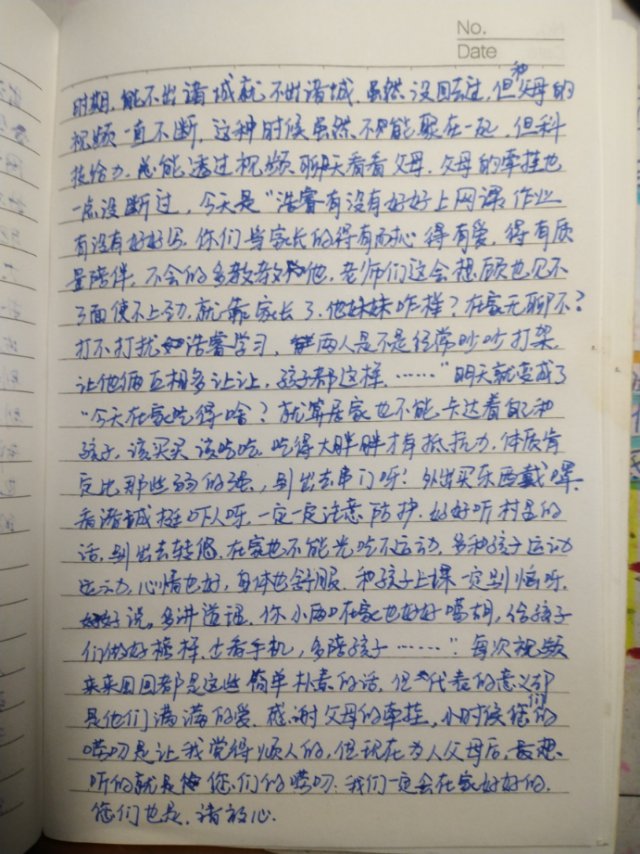 No.
Date
时期，能不出诸城就不出诸城，虽然没回去过，但和父母的
视频一直不断，这种时候虽然不能聚在一起，但科
技给力，总能透过视频聊天看看父母，父母的牵挂也
一点没断过，今天是“浩睿有没有好好上网课，作业
有没有好好写，你们当家长的得有耐心得有爱，得有质
量陪伴，不会的多教教他，老师们这会想顾也见不
了面使不上劲，就靠家长了，他妹妹咋样？在家无聊不？
打不打扰浩睿学习，两人是不是经常吵吵打架
让他俩互相多让让，孩子都这样，……”明天就变成了
“今天在家吃得啥？就算居家也不能卡达着自己和
孩子，该买买该吃吃，吃得大胖胖才有抵抗力，体质肯
定比那些弱的强，别出去串门呀！外出买东西戴口罩，
看诸城挺吓人呀，一定一定注意防护，好好听村里的
话，别出去转悠，在家也不能光吃不运动，多和孩子运动
运动，心情也好，身体也舒服，和孩子上课一定别恼呀，
好好说，多讲道理，你小两口在家也好好嘀胡，给孩子
们做好榜样，少看手机，多陪孩子……”每次视频
来来回回都是这些简单朴素的话，但代表的意义却
是他们满满的爱，感谢父母的牵挂，小时候您们的
唠叨是让我觉得烦人的，但现在为人父母后，最想
听的就是您们的唠叨，我们一定会在家好好的，
您们也是，请放心.